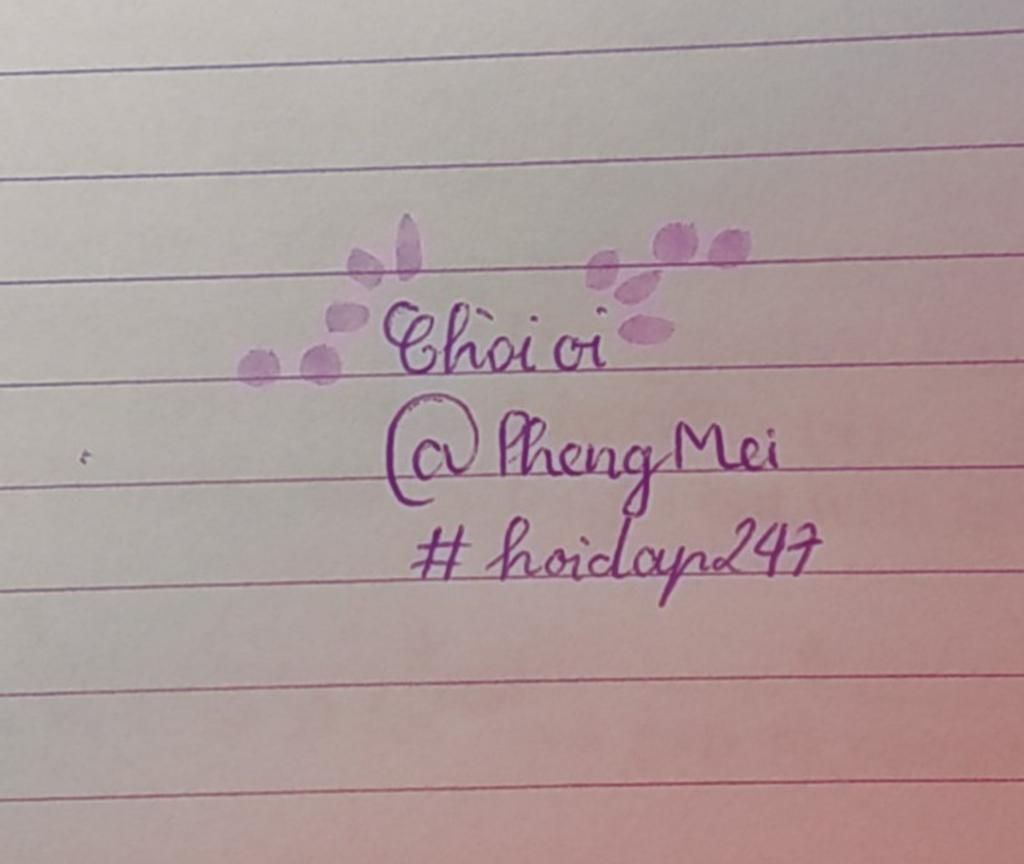 Chòi oi
@PhengMei
#hoidap247